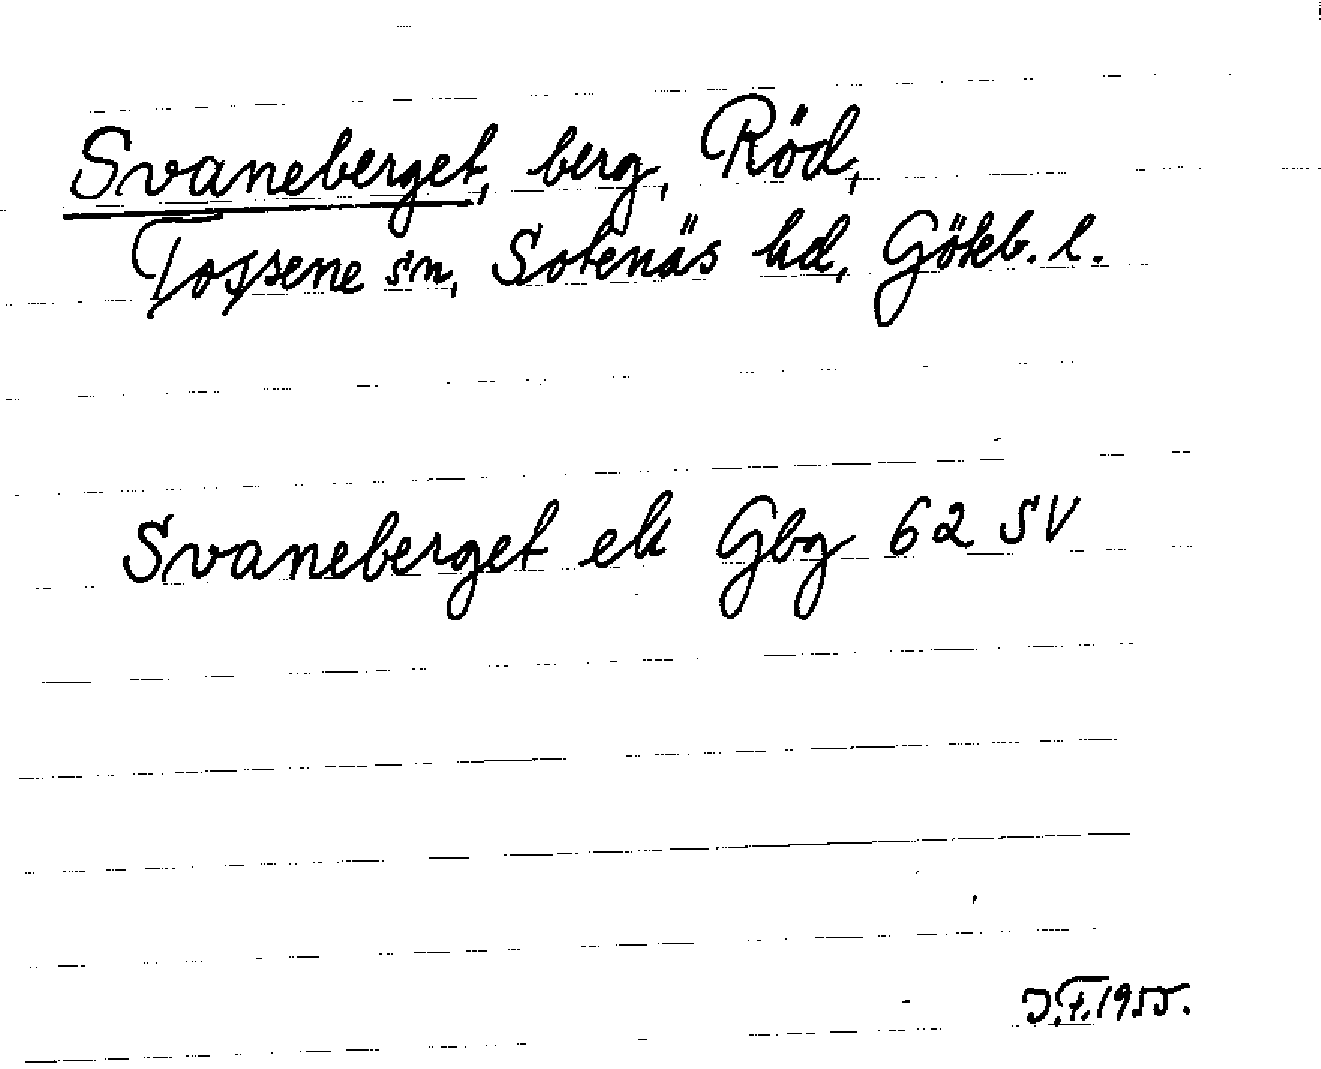 Svaneberget, berg, Röd,
Tossene sn, Sotenäs hd, Göteb. l.
Svaneberget ek Gbg 62 SV
J.F. 1955.